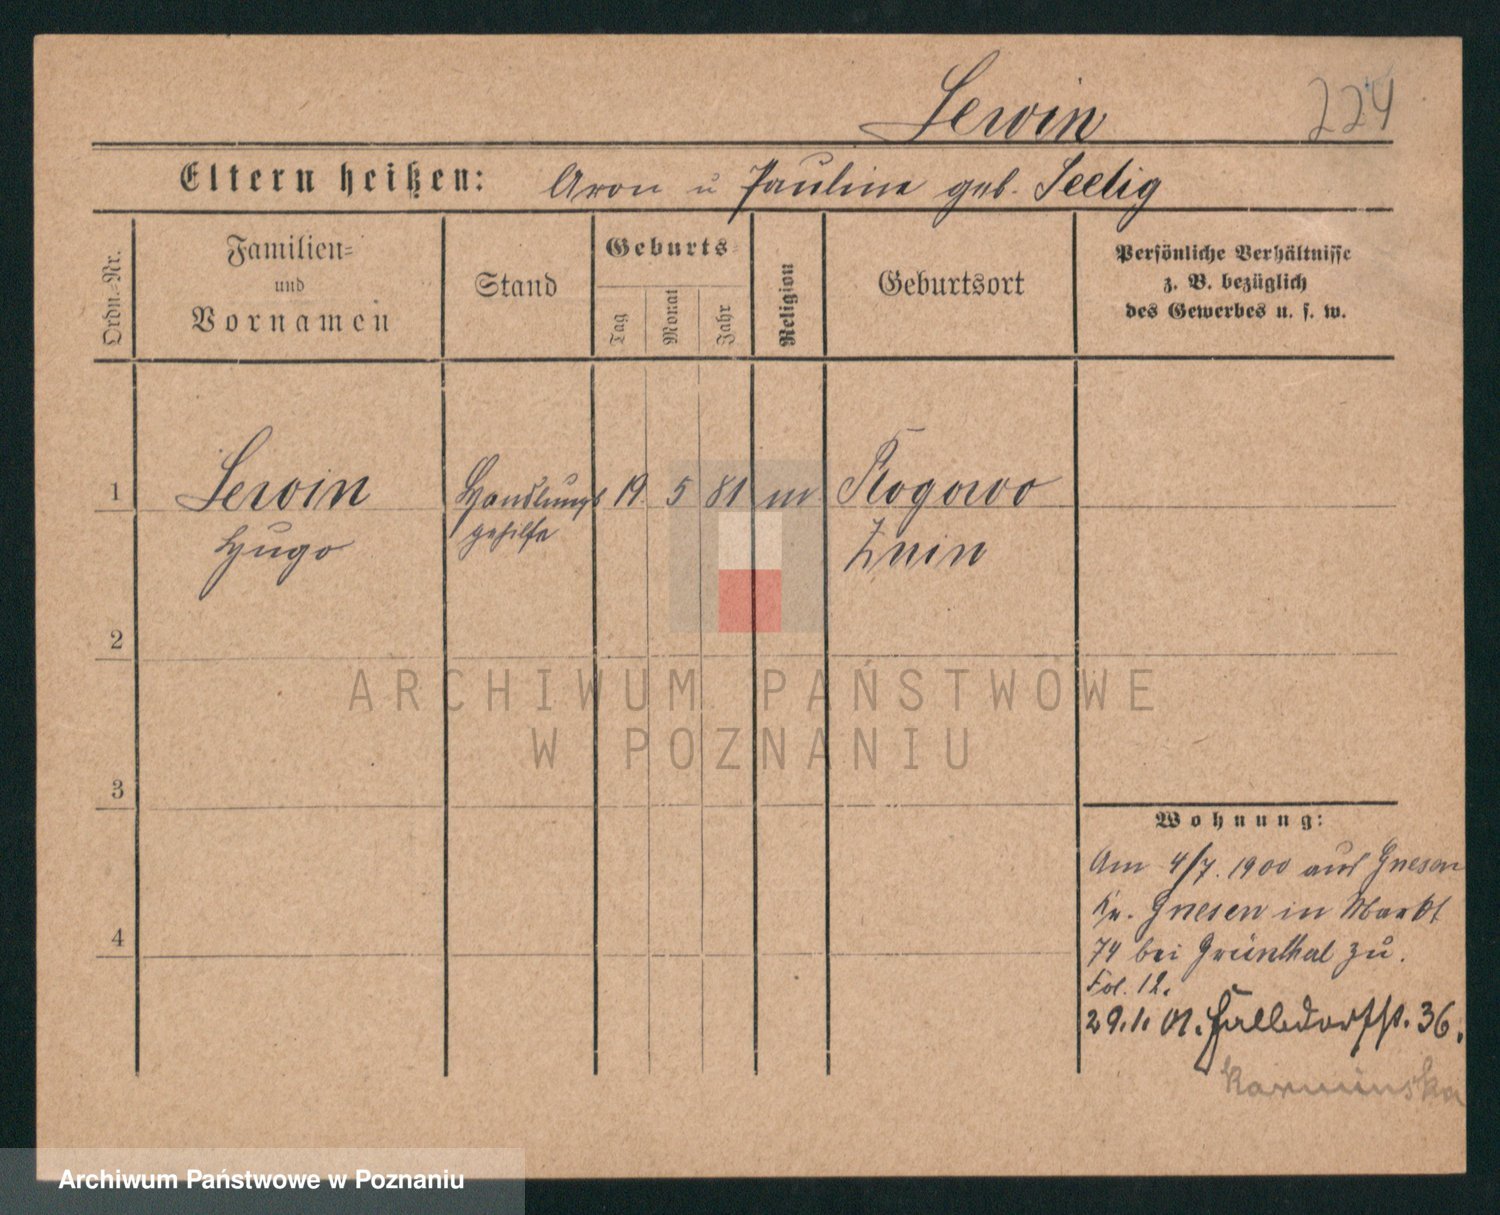 Lewin 224
Eltern heißen: Aron u Pauline geb. Seelig
Ordn.-Nr.
Familien=
und
Vornamen
Stand
Geburts=
Tag
Monat
Jahr
Religion
Geburtsort
Persönliche Verhältnisse
z. B. bezüglich
des Gewerbes u. s. w.
1 Lewin Handlungs 19. 5 81 m Rogowo
Hugo gehilfe Znin
2
ARCHIWUM PAŃSTWOWE
W POZNANIU
3
Wohnung:
Am 4/7. 1900 aus Gnesen
Kr. Gnesen in Markt
4
74 bei Grünthal zu.
Fol. 12.
29.1.01. Halldorfst. 36.
Karminska
Archiwum Państwowe w Poznaniu